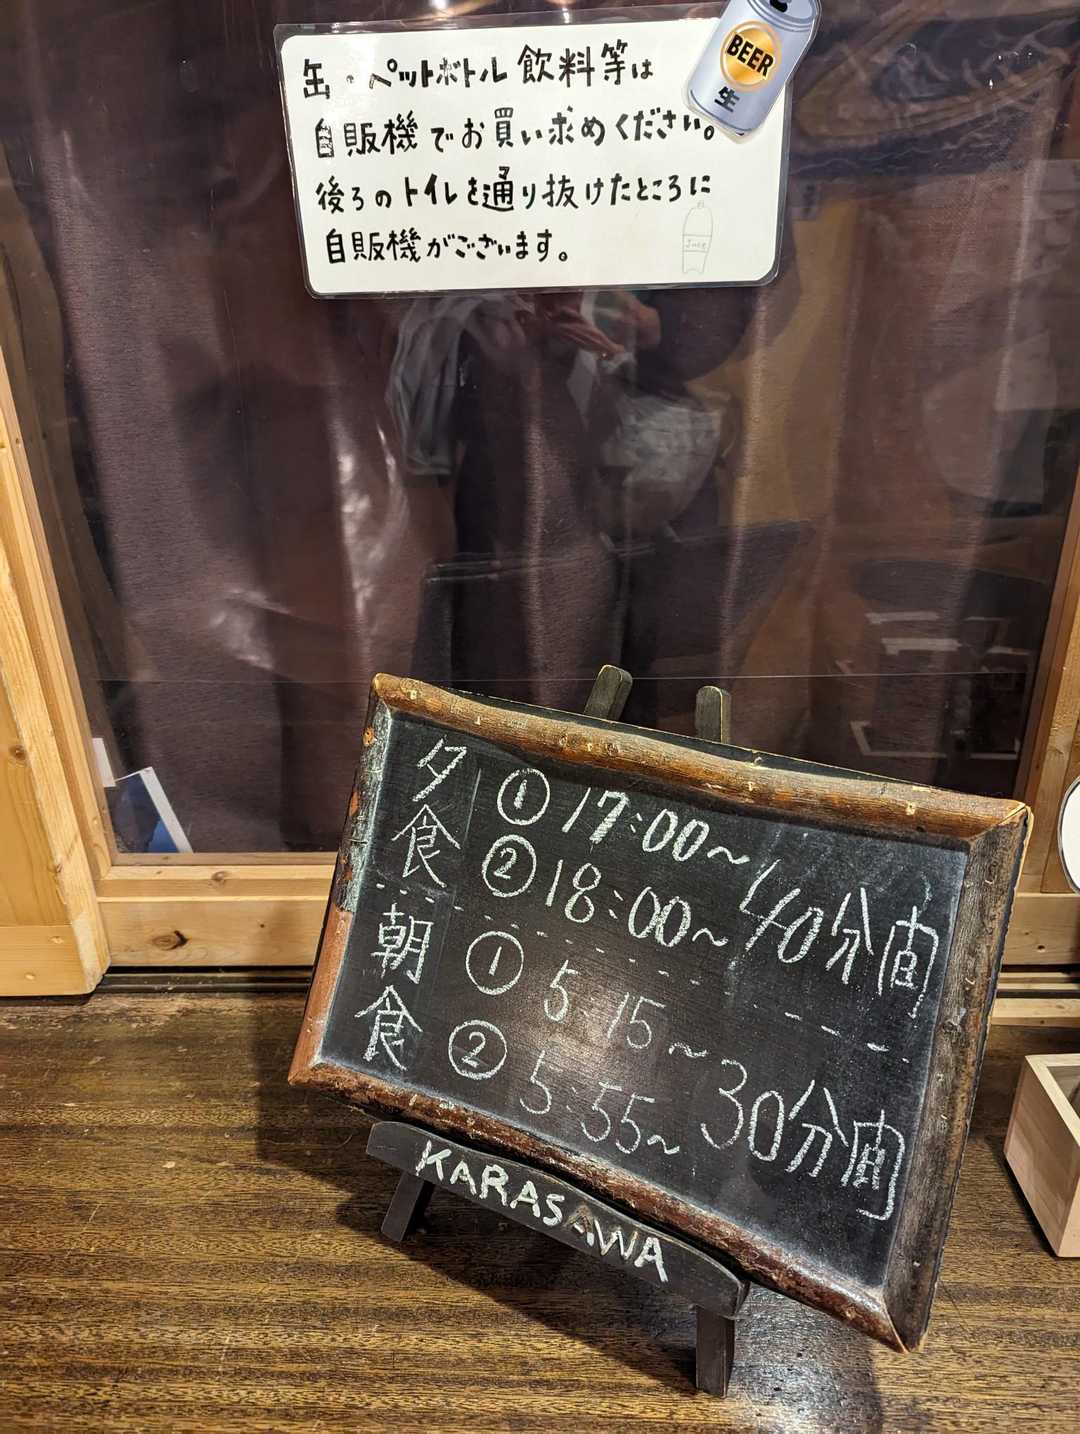 缶・ペットボトル飲料等は
自販機でお買い求めください。
後ろのトイレを通り抜けたところに
自販機がございます。
BEER
生
Juce
夕食 ① 17:00～
② 18:00～ 40分間
朝食 ① 5:15～
② 5:55～ 30分間
KARASAWA